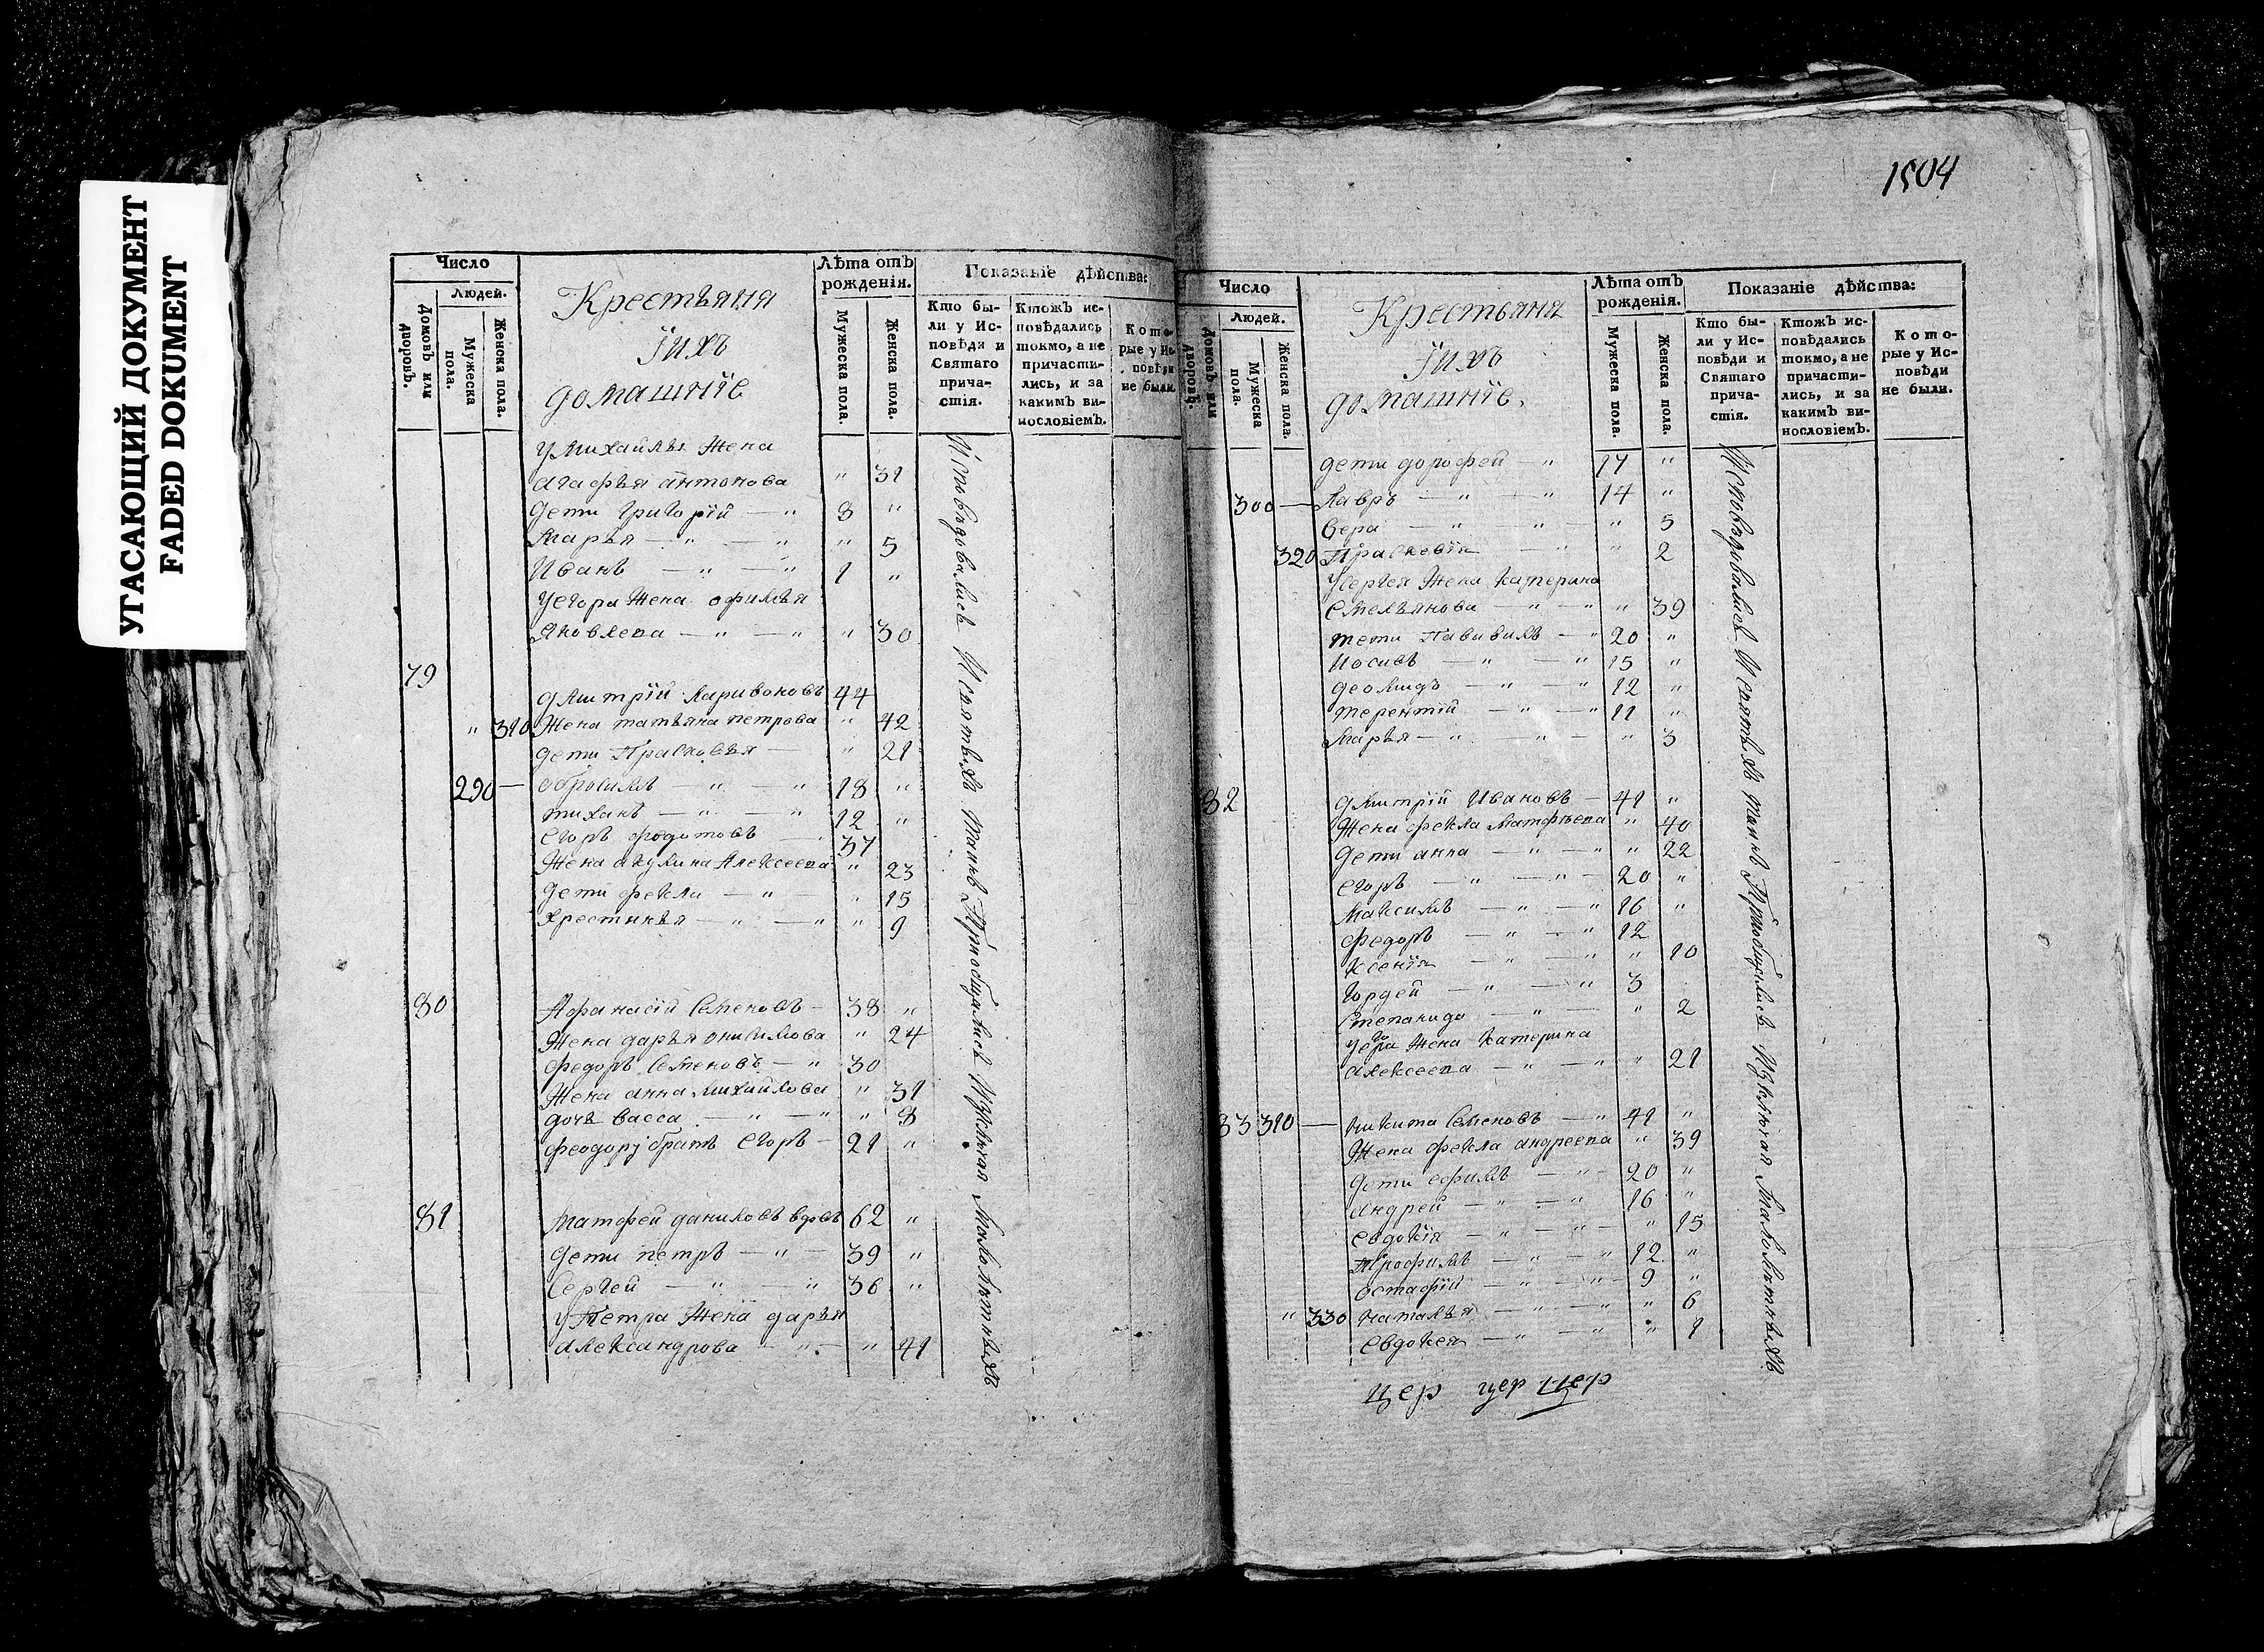 УТАСАЮЩИЙ ДОКУМЕНТ
FADED DOKUMENT
Число
Людей.
Домовъ или дворовъ.
Мужеска пола.
Женска пола.
Крестьяня
Їихъ
домашнїе
Лѣта отъ рожденія.
Мужеска пола.
Женска пола.
Показаніе дѣйства:
Кто были у Исповѣди и Святаго причастія.
Ктожъ исповѣдались токмо, а не причастились, и за какимъ винословіемъ.
Которые у Исповѣди не были.
У михайлы Жена
агафья антонова " 31
дети григорїй — " 8 "
Марья — " — " " 5
Иванъ — " — " 1 "
У егора Жена офимья
Яковлева — " — " " 30
79
дмитрїй Ларивоновъ 44
" 310 Жена татьяна петрова " 42
дети Прасковья — " 21
290 — обросимъ — " — " 18 "
тиханъ — " — " 12 "
егоръ федотовъ — 37
Жена акулина Алексеева " 23
дети фекла — " — " 15
Хрестинья — " — " " 9
80 Афанасїй Семеновъ — 38 "
Жена дарья онисимова " 24
федоръ Семеновъ — " 30
Жена анна михайлова " 31
дочь васса — " — " " 8
феодору братъ егоръ — 21 "
81 матфей даниловъ вдовъ 62 "
дети петръ — " — 39 "
Сергей — " — " 36 "
у Петра Жена дарья
александрова — " — " 41
Исповѣдовались И святыхъ таинъ Прїобщались Изключая Малолѣтныхъ
1504
Число
Людей.
Домовъ или дворовъ.
Мужеска пола.
Женска пола.
Крестьяня
Їихъ
домашнїе.
Лѣта отъ рожденія.
Мужеска пола.
Женска пола.
Показаніе дѣйства:
Кто были у Исповѣди и Святаго причастія.
Ктожъ исповѣдались токмо, а не причастились, и за какимъ винословіемъ.
Которые у Исповѣди не были.
дети дорофей — " 17 "
300 — Лавръ — " — " 14 "
Вера — " — " — " 5
320 Прасковїя — " " 2
У сергея Жена Катерина
емельянова — " — " " 39
дети Павивилъ — " 20 "
Иосивъ — " — " 15 "
деомидъ — " — " 12 "
терентїй — " — " 11 "
Марья — " — " — " 3
82 дмитрїй Ивановъ — 41 "
Жена фекла Матфѣева " 40
дети анна — " — " " 22
егоръ — " — " — 20 "
Максимъ — " — " 16 "
федоръ — " — " 12
Ксенїя — " — " " 10
Гордей — " — " 3
Степанида — " — " 2
У егора Жена Катерина
алексеева — " — " " 21
83 310 — никита Семеновъ — " 41 "
Жена фекла андреева " 39
дети ефимъ — " — 20 "
андрей — " — " 16 "
евдокїя — " — " — " 15
Трофимъ — " — " 12 "
остафїй — " — " — 9 "
" 330 наталья — " — " " 6
Евдокея — " — " " 1
Исповѣдовались И святыхъ таинъ Прїобщались Изключая Малолѣтныхъ
цер цер цер